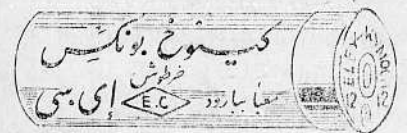 كينوخ بونكس
خرطوش
معبأ ببارود E.C إي. سي
ELEY-KYNOCH
12 12